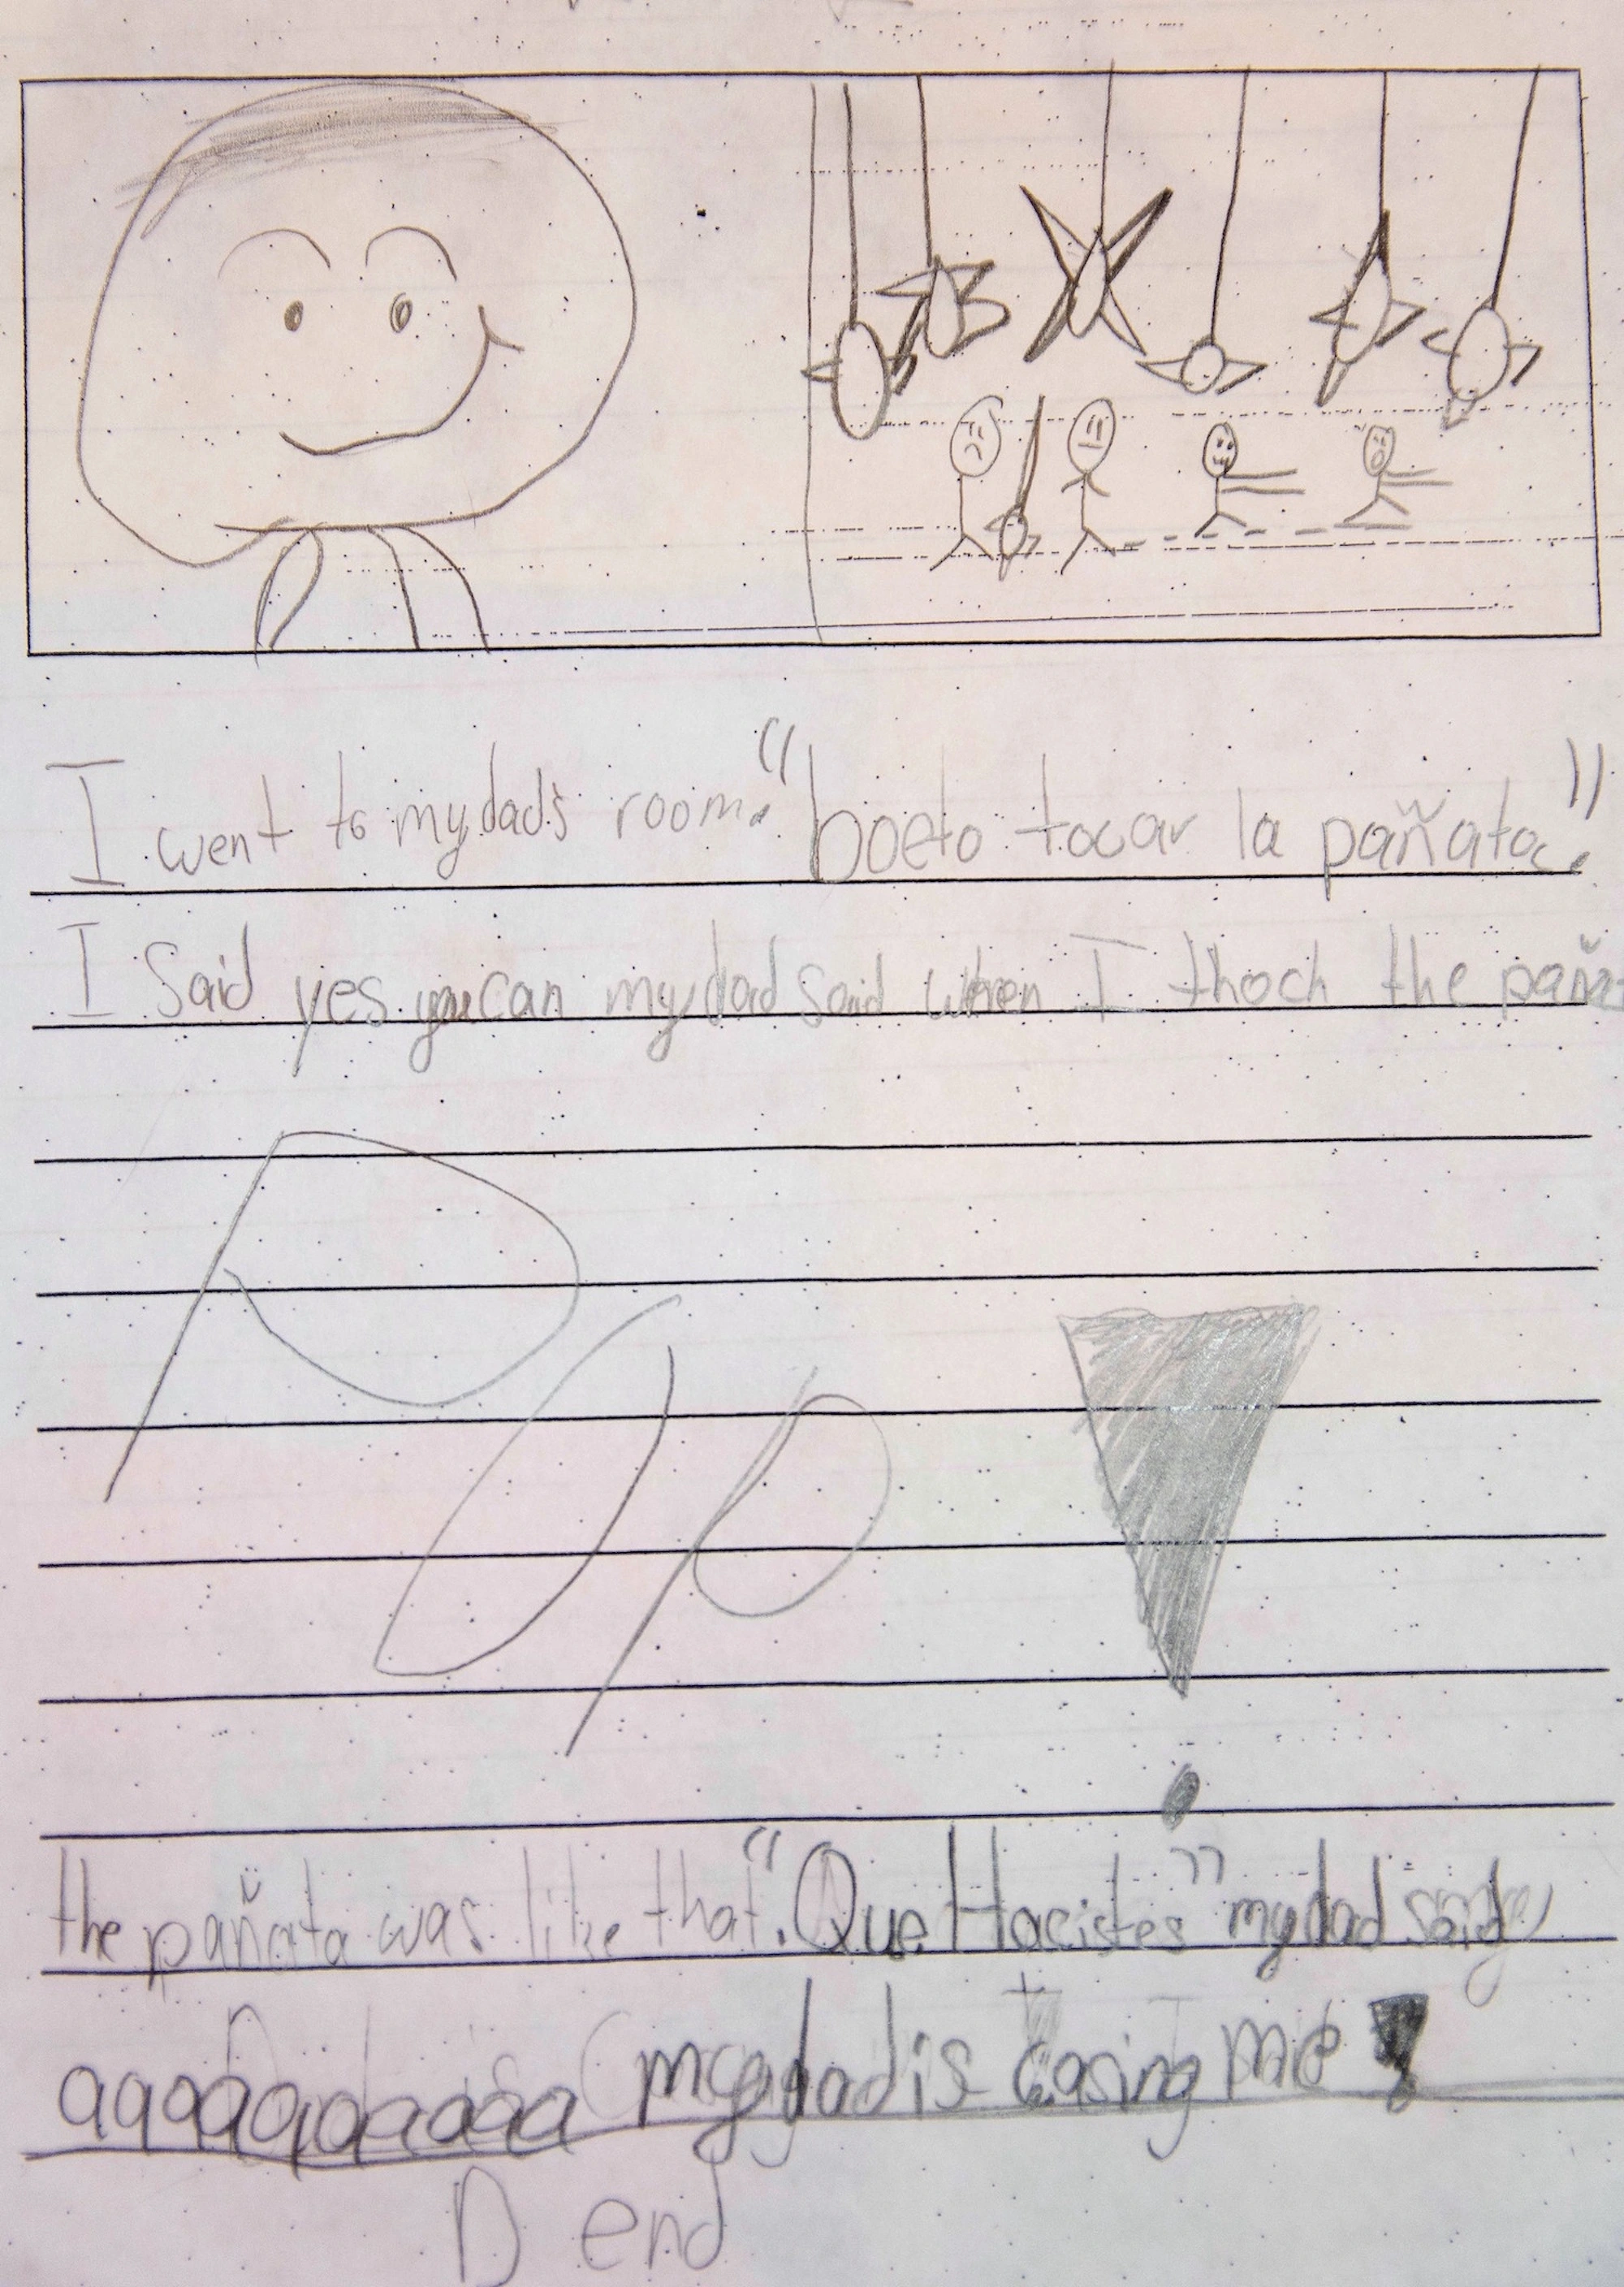 I went to my dad's room. "boeto tocar la pañata."
I Said yes you can my dad said when I thoch the paña
Pup!
the pañata was like that. "Que Hacistes" my dad said
aaaaaaaaaaa my dad is casing me!
D end